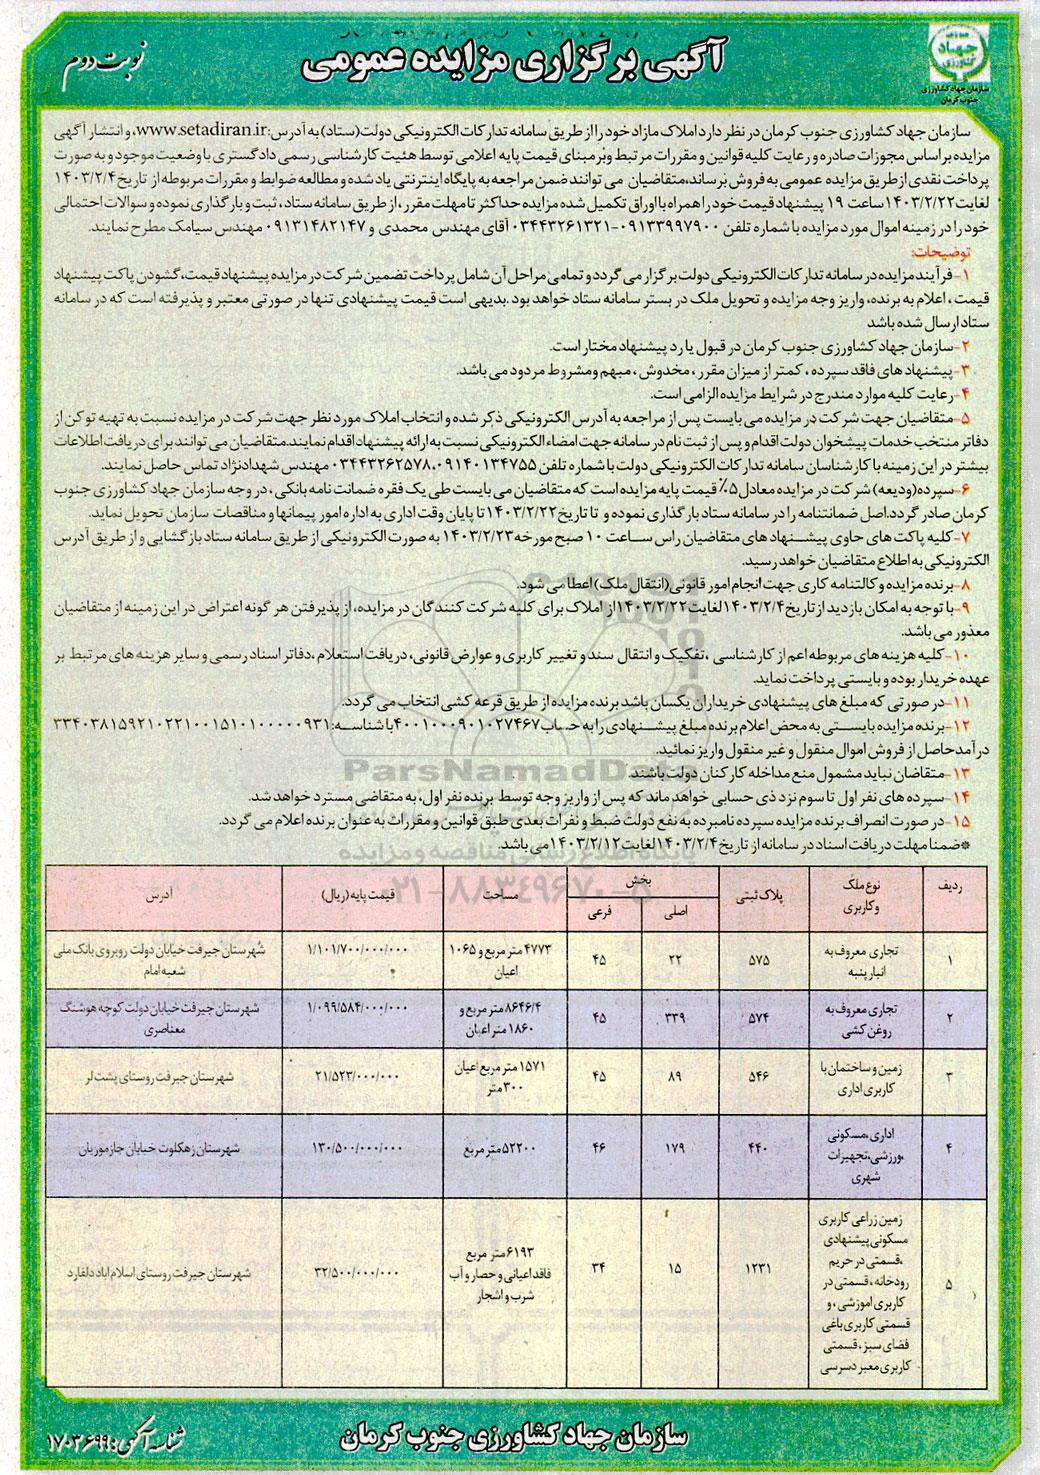 آگهی برگزاری مزایده عمومی
نوبت دوم
جهاد کشاورزی
سازمان جهاد کشاورزی
جنوب کرمان
سازمان جهاد کشاورزی جنوب کرمان در نظر دارد املاک مازاد خود را از طریق سامانه تدارکات الکترونیکی دولت(ستاد) به آدرس:www.setadiran.ir، و انتشار آگهی
مزایده بر اساس مجوزات صادره و رعایت کلیه قوانین و مقررات مرتبط وبر مبنای قیمت پایه اعلامی توسط هئیت کارشناسی رسمی دادگستری با وضعیت موجود و به صورت
پرداخت نقدی از طریق مزایده عمومی به فروش برساند،متقاضیان می توانند ضمن مراجعه به پایگاه اینترنتی یاد شده و مطالعه ضوابط و مقررات مربوطه از تاریخ ۱۴۰۳/۲/۴
لغایت۱۴۰۳/۲/۲۲ساعت ۱۹ پیشنهاد قیمت خود را همراه با اوراق تکمیل شده مزایده حداکثر تا مهلت مقرر ، از طریق سامانه ستاد ، ثبت و بارگذاری نموده و سوالات احتمالی
خود را در زمینه اموال مورد مزایده با شماره تلفن ۰۹۱۳۳۹۹۷۹۰۰-۰۳۴۴۳۲۶۱۳۲۱ آقای مهندس محمدی و ۰۹۱۳۱۴۸۲۱۴۷ مهندس سیامک مطرح نمایند.
توضیحات:
۱-فرآیند مزایده در سامانه تدارکات الکترونیکی دولت برگزار می گردد و تمامی مراحل آن شامل پرداخت تضمین شرکت در مزایده پیشنهاد قیمت، گشودن پاکت پیشنهاد
قیمت ، اعلام به برنده، واریز وجه مزایده و تحویل ملک در بستر سامانه ستاد خواهد بود .بدیهی است قیمت پیشنهادی تنها در صورتی معتبر و پذیرفته است که در سامانه
ستاد ارسال شده باشد
۲-سازمان جهاد کشاورزی جنوب کرمان در قبول یا رد پیشنهاد مختار است.
۳-پیشنهاد های فاقد سپرده ، کمتر از میزان مقرر ، مخدوش ، مبهم ومشروط مردود می باشد.
۴-رعایت کلیه موارد مندرج در شرایط مزایده الزامی است.
۵-متقاضیان جهت شرکت در مزایده می بایست پس از مراجعه به آدرس الکترونیکی ذکر شده و انتخاب املاک مورد نظر جهت شرکت در مزایده نسبت به تهیه توکن از
دفاتر منتخب خدمات پیشخوان دولت اقدام و پس از ثبت نام در سامانه جهت امضاء الکترونیکی نسبت به ارائه پیشنهاد اقدام نمایند.متقاضیان می توانند برای دریافت اطلاعات
بیشتر در این زمینه با کارشناسان سامانه تدارکات الکترونیکی دولت با شماره تلفن ۰۳۴۴۳۲۶۲۵۷۸،۰۹۱۴۰۱۳۴۷۵۵ مهندس شهدادنژاد تماس حاصل نمایند.
۶-سپرده(ودیعه) شرکت در مزایده معادل ۵٪ قیمت پایه مزایده است که متقاضیان می بایست طی یک فقره ضمانت نامه بانکی ، در وجه سازمان جهاد کشاورزی جنوب
کرمان صادر گردد.اصل ضمانتنامه را در سامانه ستاد بارگذاری نموده و تا تاریخ ۱۴۰۳/۲/۲۲ تا پایان وقت اداری به اداره امور پیمانها و مناقصات سازمان تحویل نماید.
۷-کلیه پاکت های حاوی پیشنهاد های متقاضیان راس ساعت ۱۰ صبح مورخه ۱۴۰۳/۲/۲۳ به صورت الکترونیکی از طریق سامانه ستاد بازگشایی و از طریق آدرس
الکترونیکی به اطلاع متقاضیان خواهد رسید.
۸-برنده مزایده وکالتنامه کاری جهت انجام امور قانونی(انتقال ملک) اعطا می شود.
۹-با توجه به امکان بازدید از تاریخ ۱۴۰۳/۲/۴لغایت۱۴۰۳/۲/۲۲از املاک برای کلیه شرکت کنندگان در مزایده، از پذیرفتن هر گونه اعتراض در این زمینه از متقاضیان
معذور می باشد.
۱۰-کلیه هزینه های مربوطه اعم از کارشناسی ، تفکیک و انتقال سند و تغییر کاربری و عوارض قانونی، دریافت استعلام ،دفاتر اسناد رسمی و سایر هزینه های مرتبط بر
عهده خریدار بوده و بایستی پرداخت نماید.
۱۱-در صورتی که مبلغ های پیشنهادی خریداران یکسان باشد برنده مزایده از طریق قرعه کشی انتخاب می گردد.
۱۲-برنده مزایده بایستی به محض اعلام برنده مبلغ پیشنهادی را به حساب۴۰۰۱۰۰۰۹۰۱۰۲۷۴۶۷باشناسه:۳۳۴۰۳۸۱۵۹۲۱۰۲۲۱۰۰۱۵۱۰۱۰۰۰۰۰۹۳۱
درآمد حاصل از فروش اموال منقول و غیر منقول واریز نمائید.
۱۳-متقاضان نباید مشمول منع مداخله کارکنان دولت باشند
۱۴-سپرده های نفر اول تا سوم نزد ذی حسابی خواهد ماند که پس از واریز وجه توسط برنده نفر اول، به متقاضی مسترد خواهد شد.
۱۵-در صورت انصراف برنده مزایده سپرده نامبرده به نفع دولت ضبط و نفرات بعدی طبق قوانین و مقررات به عنوان برنده اعلام می گردد.
*ضمنا مهلت دریافت اسناد در سامانه از تاریخ ۱۴۰۳/۲/۴لغایت۱۴۰۳/۲/۱۲می باشد.
ParsNamadData
پایگاه اطلاع رسانی مناقصه و مزایده
۰۲۱-۸۸۳۴۹۶۷۰-۵
ردیف | نوع ملک و کاربری | پلاک ثبتی | بخش: اصلی | فرعی | مساحت | قیمت پایه (ریال) | آدرس
۱ | تجاری معروف به انبار پنبه | ۵۷۵ | ۲۲ | ۴۵ | ۴۷۷۳ متر مربع و ۱۰۶۵ اعیان | ۱/۱۰۱/۷۰۰/۰۰۰/۰۰۰ | شهرستان جیرفت خیابان دولت روبروی بانک ملی شعبه امام
۲ | تجاری معروف به روغن کشی | ۵۷۴ | ۳۳۹ | ۴۵ | ۸۶۴۶/۴ متر مربع و ۱۸۶۰ متر اعیان | ۱/۰۹۹/۵۸۴/۰۰۰/۰۰۰ | شهرستان جیرفت خیابان دولت کوچه هوشنگ معناصری
۳ | زمین و ساختمان با کاربری اداری | ۵۴۶ | ۸۹ | ۴۵ | ۱۵۷۱ متر مربع اعیان ۳۰۰ متر | ۲۱/۵۲۳/۰۰۰/۰۰۰ | شهرستان جیرفت روستای پشت لر
۴ | اداری،مسکونی ،ورزشی،تجهیزات شهری | ۴۴۰ | ۱۷۹ | ۴۶ | ۵۲۲۰۰ متر مربع | ۱۳۰/۵۰۰/۰۰۰/۰۰۰ | شهرستان زهکلوت خیابان جازموریان
۵ | زمین زراعی کاربری مسکونی پیشنهادی ،قسمتی در حریم رودخانه ، قسمتی در کاربری اموزشی ، و قسمتی کاربری باغی فضای سبز ، قسمتی کاربری معبر دسرسی | ۱۲۳۱ | ۱۵ | ۳۴ | ۶۱۹۳ متر مربع فاقد اعیانی و حصار و آب شرب و اشجار | ۳۲/۵۰۰/۰۰۰/۰۰۰ | شهرستان جیرفت روستای اسلام اباد دلفارد
سازمان جهاد کشاورزی جنوب کرمان
شناسه آگهی: ۱۷۰۳۶۹۹